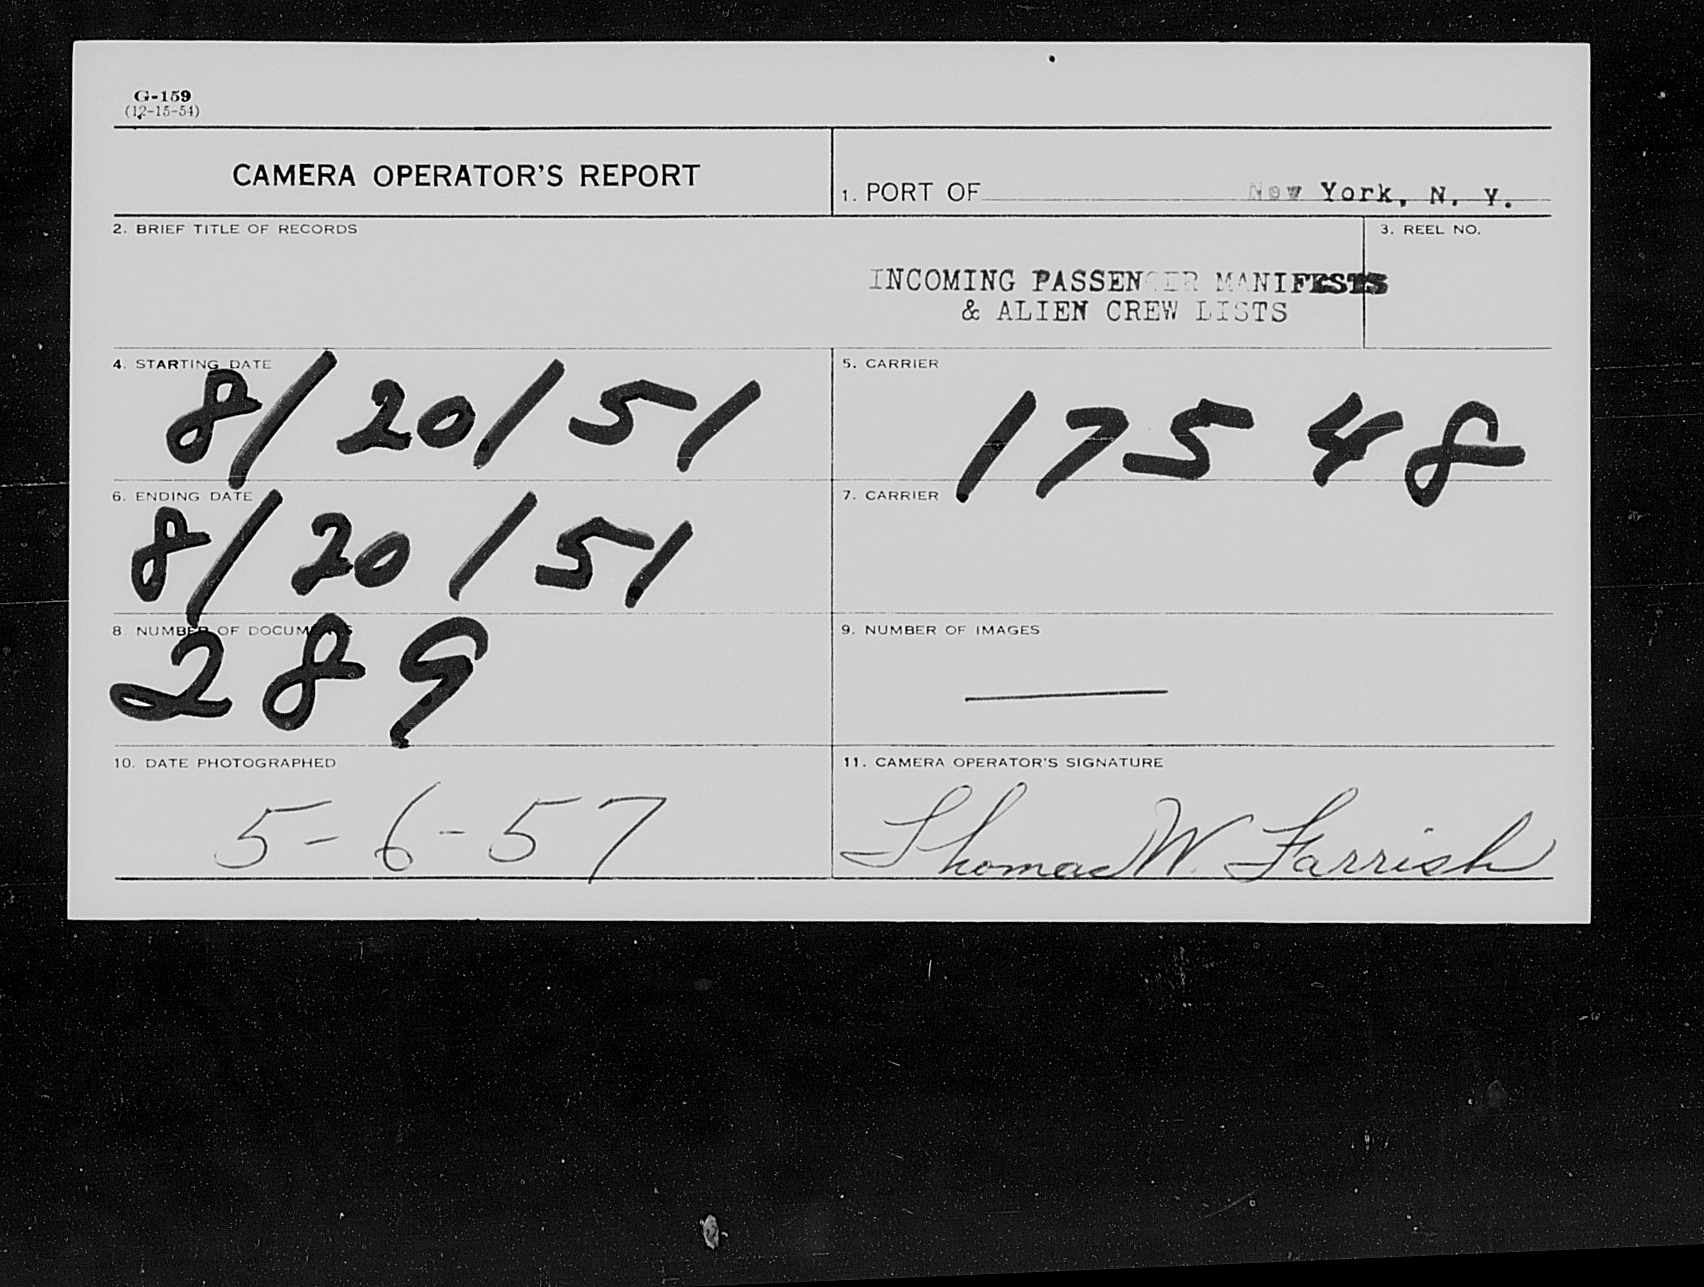 G-159
(12-15-54)
CAMERA OPERATOR'S REPORT
1. PORT OF New York, N. Y.
2. BRIEF TITLE OF RECORDS
INCOMING PASSENGER MANIFESTS
& ALIEN CREW LISTS
3. REEL NO.
4. STARTING DATE
8/20/51
5. CARRIER
17548
6. ENDING DATE
8/20/51
7. CARRIER
8. NUMBER OF DOCUMENTS
289
9. NUMBER OF IMAGES
—
10. DATE PHOTOGRAPHED
5-6-57
11. CAMERA OPERATOR'S SIGNATURE
Thomas W. Farrish